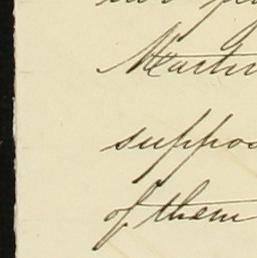 Martin
suppos
of them